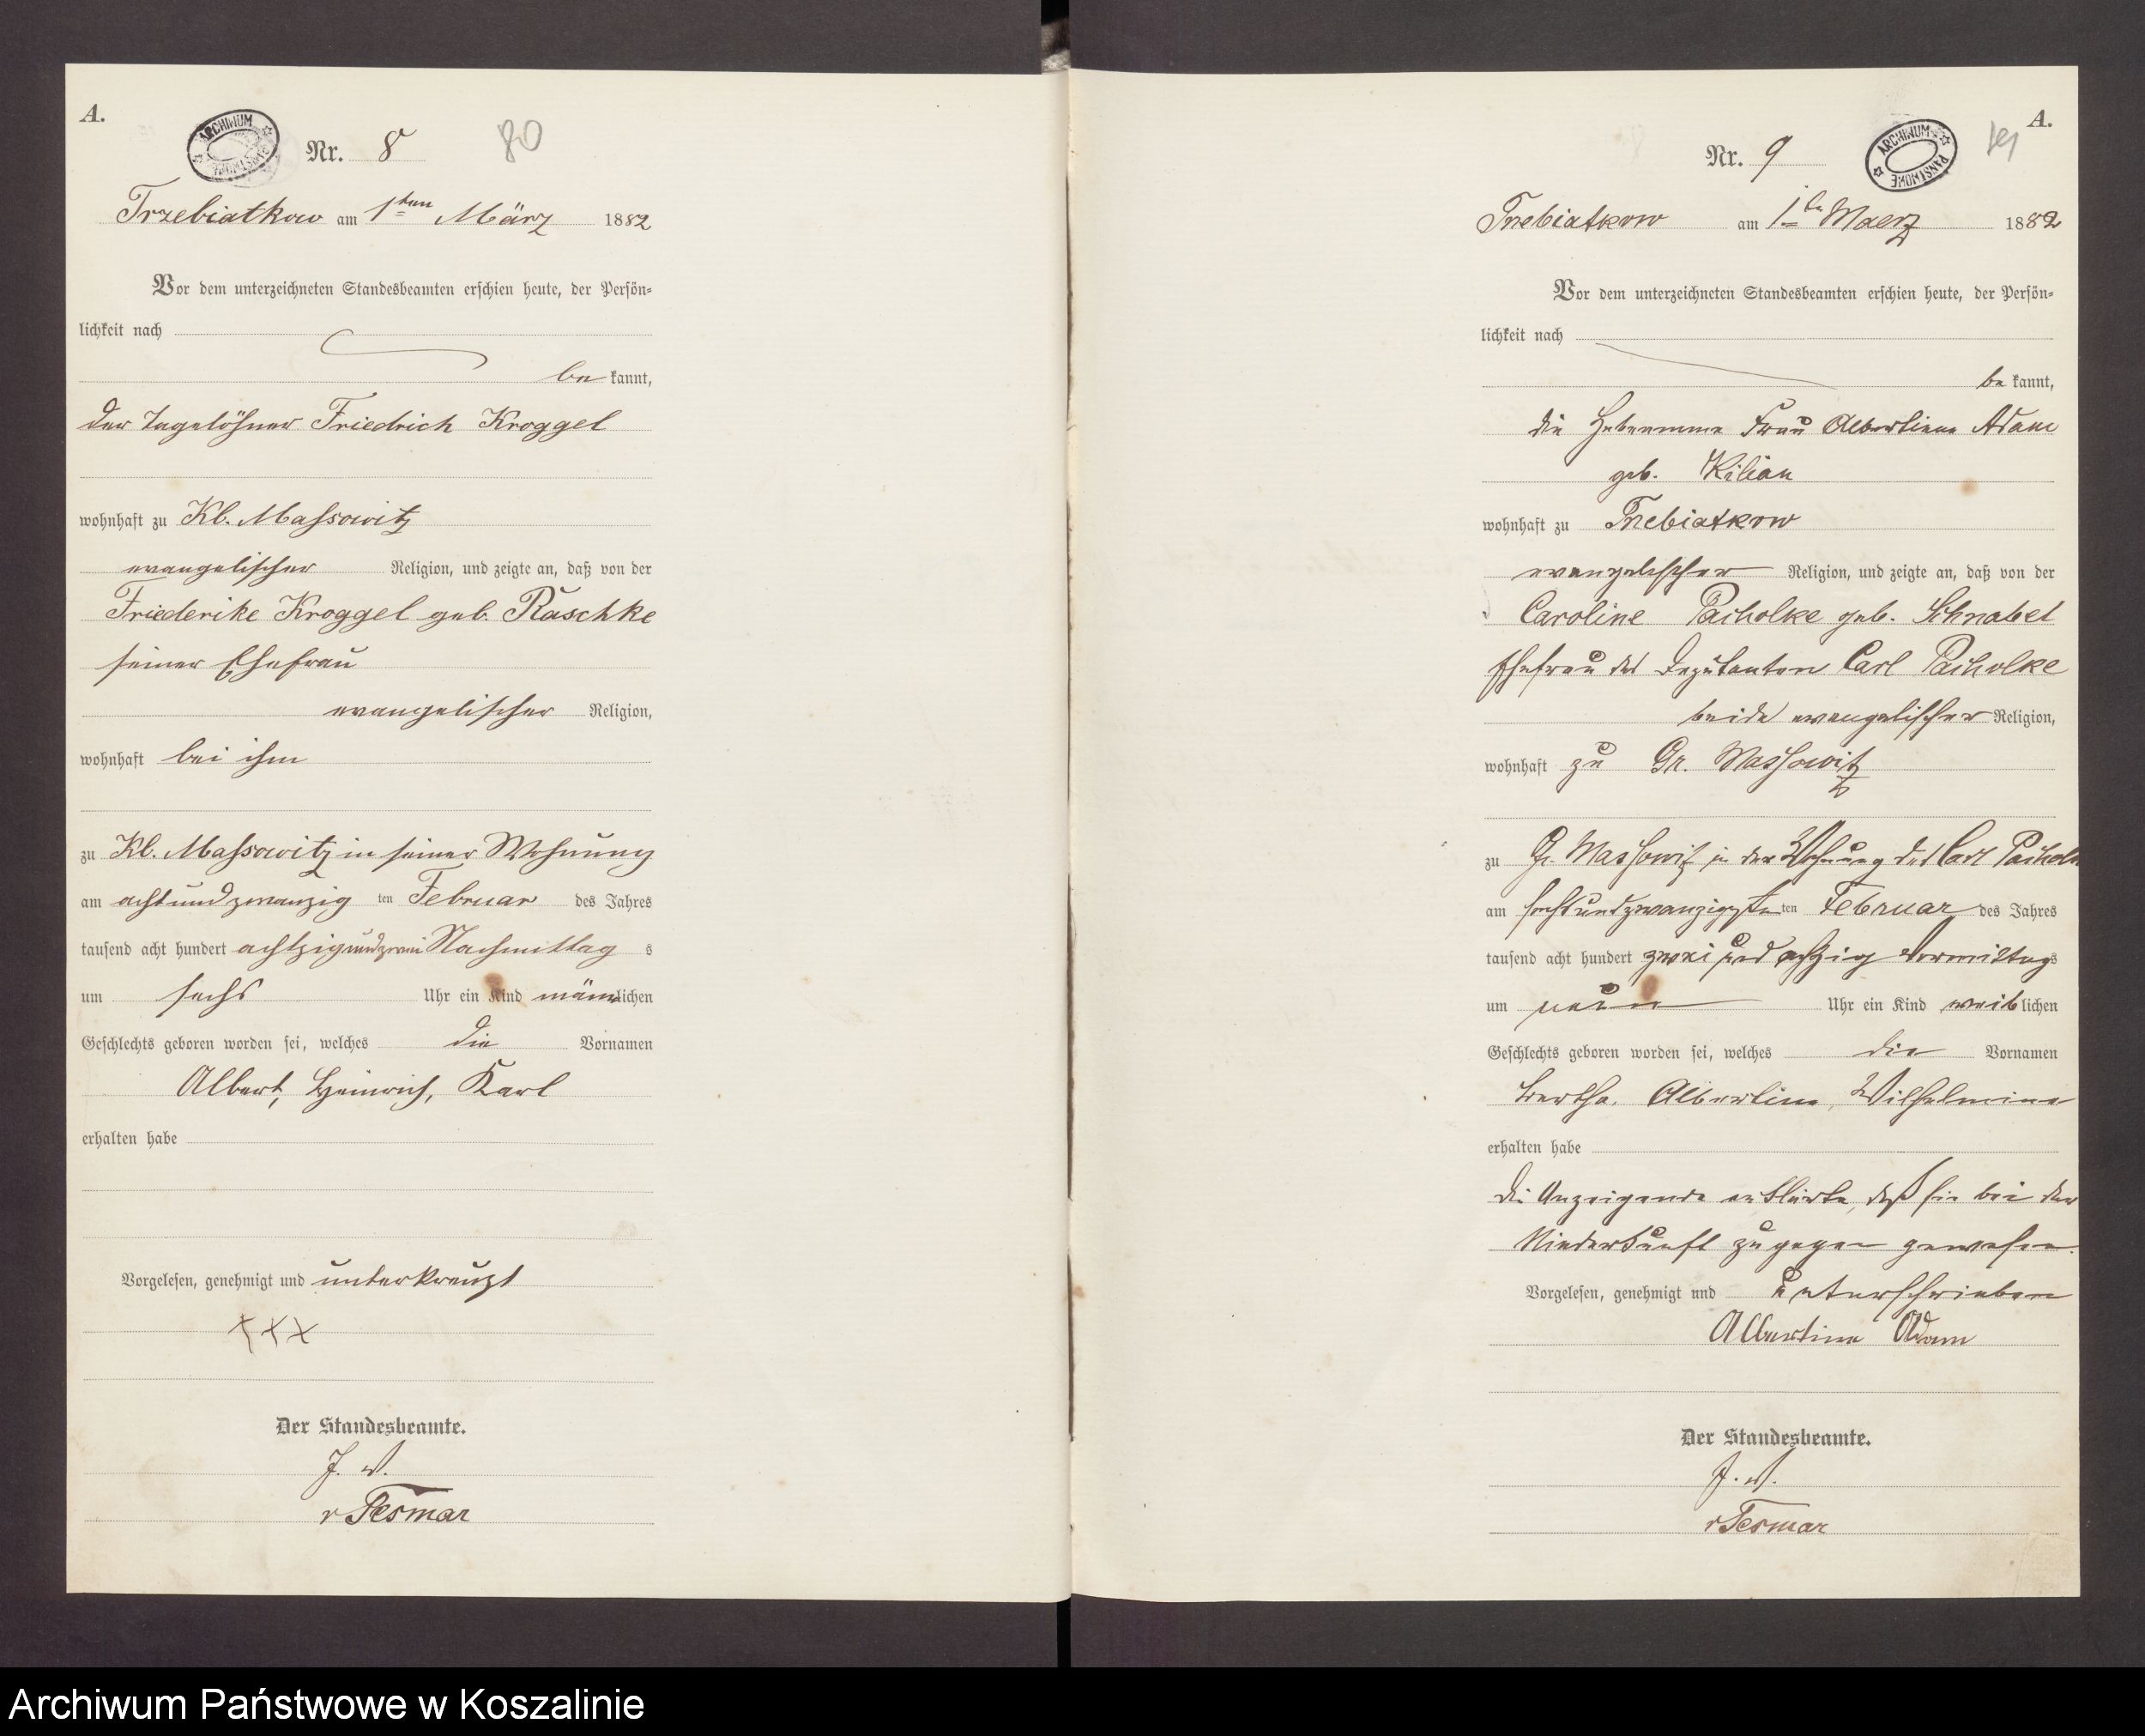 A.
ARCHIWUM
Nr. 8
80
Trzebiatkow am 1ten März 1882
Vor dem unterzeichneten Standesbeamten erschien heute, der Persön-
lichkeit nach
be kannt,
der Tagelöhner Friedrich Kroggel
wohnhaft zu Kl. Massowitz
evangelischer Religion, und zeigte an, daß von der
Friederike Kroggel geb. Raschke
seiner Ehefrau
evangelischer Religion,
wohnhaft bei ihm
zu Kl. Massowitz in seiner Wohnung
am achtundzwanzig ten Februar des Jahres
tausend acht hundert achtzigundzwei Nachmittag s
um sechs Uhr ein Kind männlichen
Geschlechts geboren worden sei, welches die Vornamen
Albert, Heinrich, Karl
erhalten habe
Vorgelesen, genehmigt und unterkreuzt
XXX
Der Standesbeamte.
J. V.
v Tesmar
A.
ARCHIWUM PAŃSTWOWE
Nr. 9
Trzebiatkow am 1ten Maerz 1882
Vor dem unterzeichneten Standesbeamten erschien heute, der Persön-
lichkeit nach
be kannt,
die Hebeamme Frau Albertine Adam
geb. Kilian
wohnhaft zu Trzebiatkow
evangelischer Religion, und zeigte an, daß von der
Caroline Pacholke geb. Schnabel
Ehefrau des Deputanten Carl Pacholke
beide evangelischer Religion,
wohnhaft zu Gr. Massowitz
zu Gr. Massowitz in der Wohnung des Carl Pacholke
am sechsundzwanzigsten ten Februar des Jahres
tausend acht hundert zwei und achtzig Vormittags
um neun Uhr ein Kind weiblichen
Geschlechts geboren worden sei, welches die Vornamen
Bertha, Albertine, Wilhelmine
erhalten habe
Die Anzeigende erklärte, daß sie bei der
Niederkunft zugegen gewesen.
Vorgelesen, genehmigt und unterschrieben
Albertine Adam
Der Standesbeamte.
J. V.
v Tesmar
Archiwum Państwowe w Koszalinie